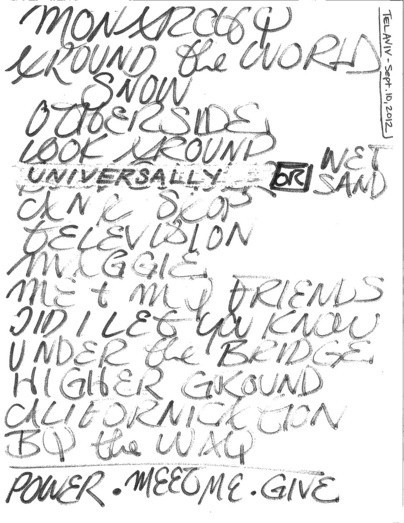 TEL AVIV - Sept. 10, 2012
MONARCHY
AROUND the WORLD
SNOW
OTHERSIDE
LOOK AROUND
UNIVERSALLY OR WET SAND
CANT STOP
TELEVISION
MAGGIE
ME + MY FRIENDS
DID I LET YOU KNOW
UNDER the BRIDGE
HIGHER GROUND
CALIFORNICATION
BY the WAY
POWER . MEET ME . GIVE